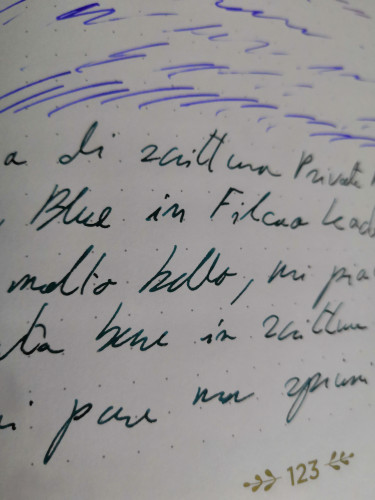 a di scrittura Private
Blue in Filcao
molto bello, mi
bene in scrittura
pare
123